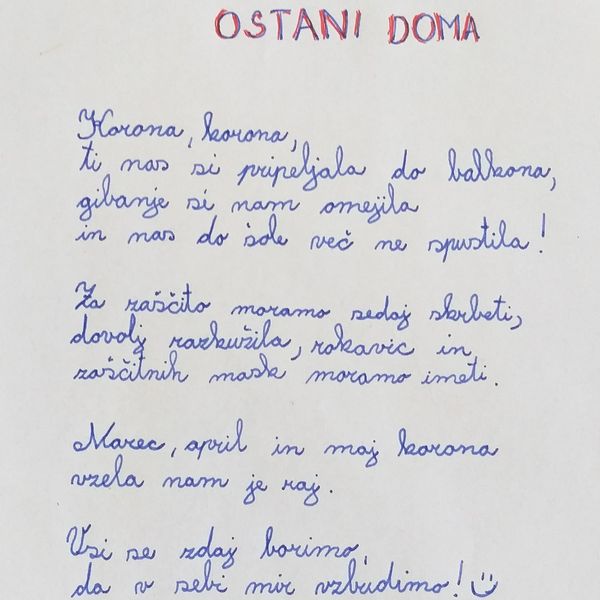 OSTANI DOMA
Korona, korona,
ti nas si pripeljala do balkona,
gibanje si nam omejila
in nas do šole več ne spustila!
Za zaščito moramo sedaj skrbeti,
dovolj razkužila, rokavic in
zaščitnih mask moramo imeti.
Marec, april in maj korona
vzela nam je raj.
Vsi se zdaj borimo,
da v sebi mir vzbudimo! :)